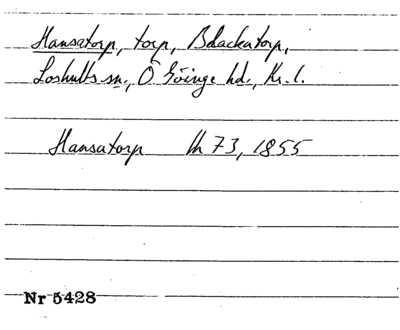 Hansatorp, torp, Blackatorp,
Loshults sn., Ö Göinge hd., Kr. l.
Hansatorp lh 73, 1855
Nr 5428